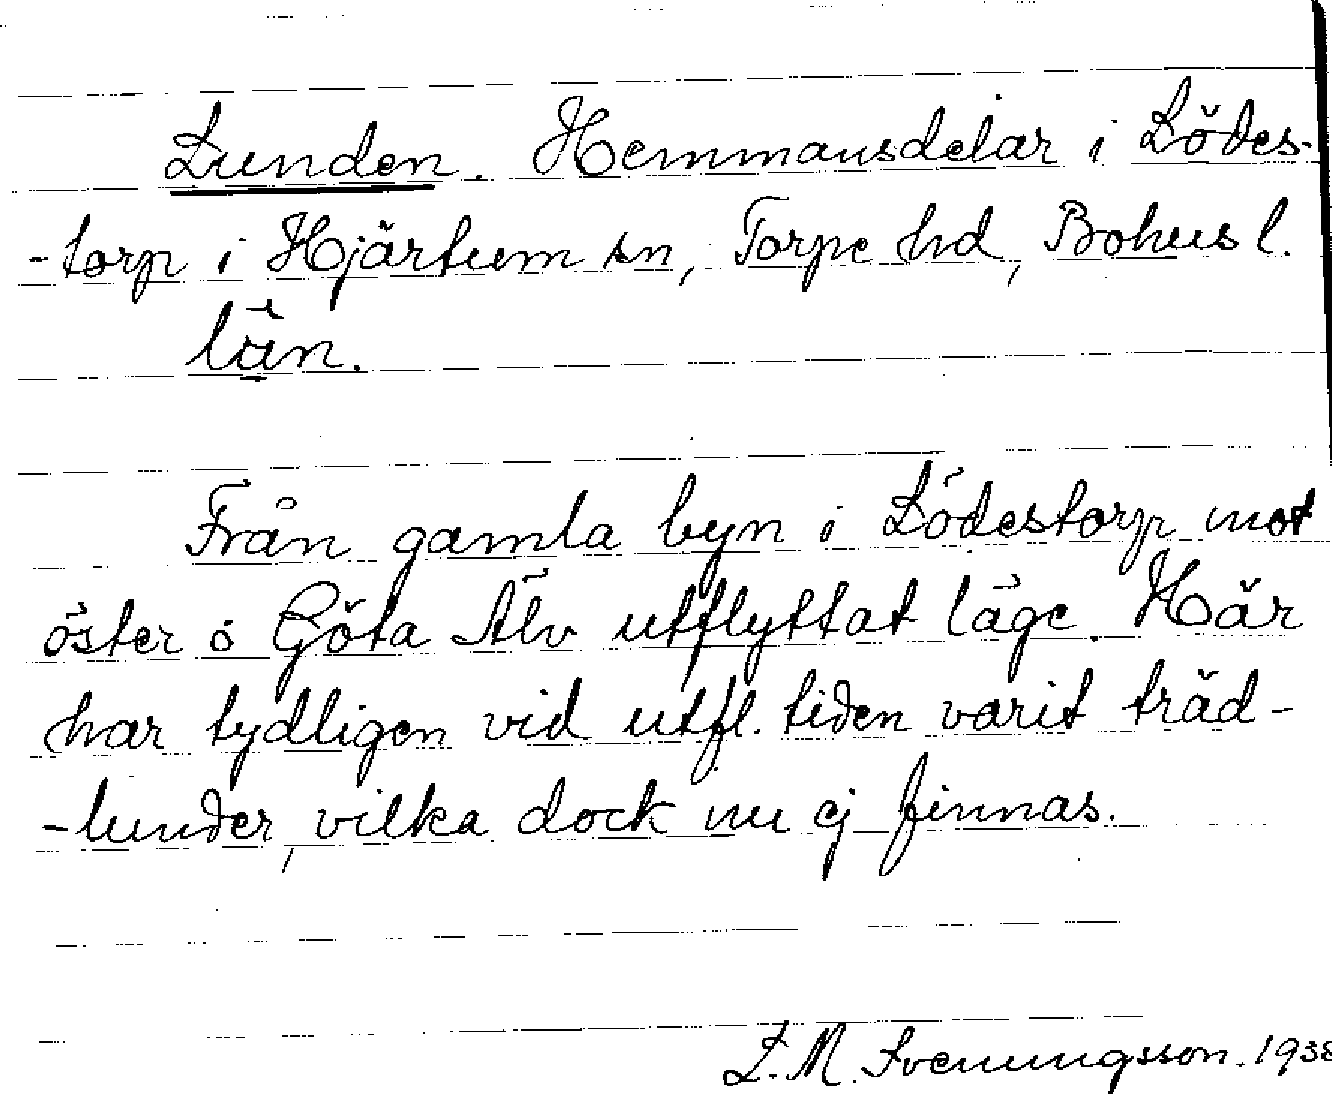 Lunden. Hemmansdelar i Lödes-
-torp i Hjärtum sn, Torpe hd, Bohus l.
län.
Från gamla byn i Lödestorp mot
öster ö Göta Älv utflyttat läge. Här
har tydligen vid utfl. tiden varit träd-
-lunder, vilka dock nu ej finnas.
L. M. Svenungsson. 1938